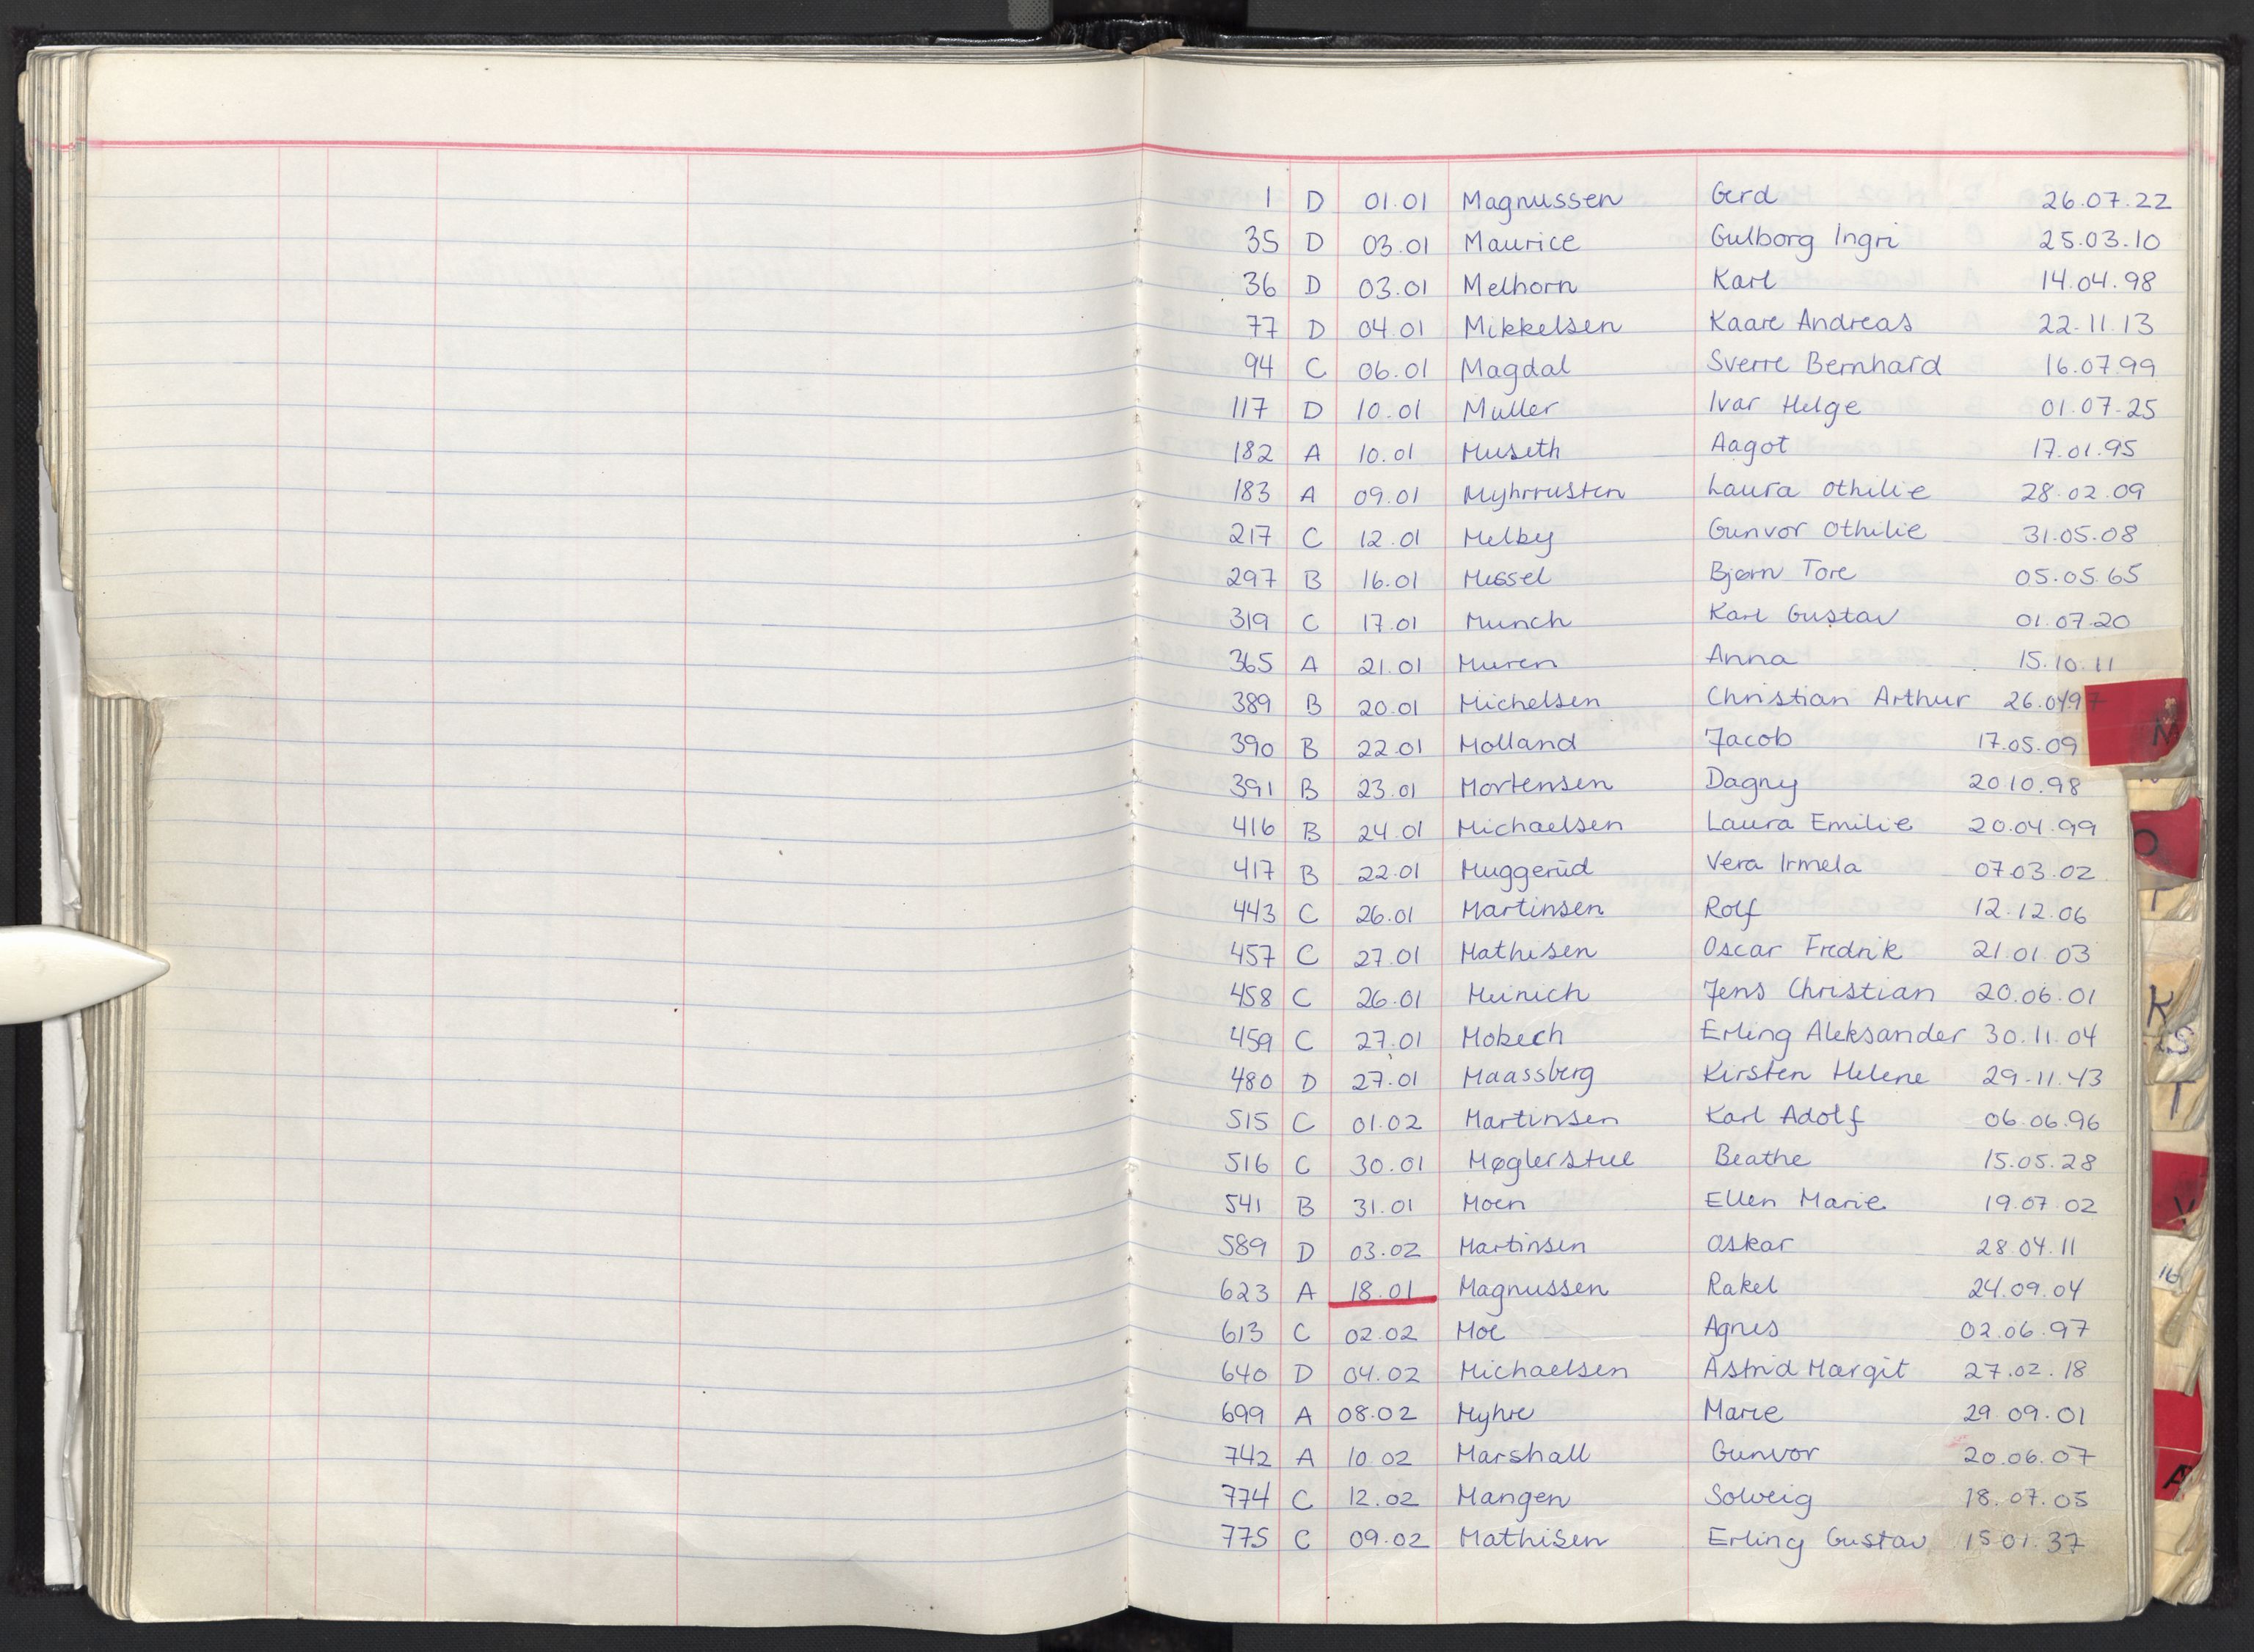 1 D 01.01 Magnussen Gerd 26.07.22
35 D 03.01 Maurice Gulborg Ingri 25.03.10
36 D 03.01 Melhorn Karl 14.04.98
77 D 04.01 Mikkelsen Kaare Andreas 22.11.13
94 C 06.01 Magdal Sverre Bernhard 16.07.99
117 D 10.01 Müller Ivar Helge 01.07.25
182 A 10.01 Museth Aagot 17.01.95
183 A 09.01 Myhrrusten Laura Othilie 28.02.09
217 C 12.01 Melby Gunvor Othilie 31.05.08
297 B 16.01 Messel Bjørn Tore 05.05.65
319 C 17.01 Munch Karl Gustav 01.07.20
365 A 21.01 Muren Anna 15.10.11
389 B 20.01 Michelsen Christian Arthur 26.04.97
390 B 22.01 Molland Jacob 17.05.09
391 B 23.01 Mortensen Dagny 20.10.98
416 B 24.01 Michaelsen Laura Emilie 20.04.99
417 B 22.01 Muggerud Vera Irmela 07.03.02
443 C 26.01 Martinsen Rolf 12.12.06
457 C 27.01 Mathisen Oscar Fredrik 21.01.03
458 C 26.01 Meinich Jens Christian 20.06.01
459 C 27.01 Mobech Erling Aleksander 30.11.04
480 D 27.01 Maassberg Kirsten Helene 29.11.43
515 C 01.02 Martinsen Karl Adolf 06.06.96
516 C 30.01 Møglerstue Beathe 15.05.28
541 B 31.01 Moen Ellen Marie 19.07.02
589 D 03.02 Martinsen Oskar 28.04.11
623 A 18.01 Magnussen Rakel 24.09.04
613 C 02.02 Moe Agnes 02.06.97
640 D 04.02 Michaelsen Astrid Margit 27.02.18
699 A 08.02 Myhre Marie 29.09.01
742 A 10.02 Marshall Gunvor 20.06.07
774 C 12.02 Mangen Solveig 18.07.05
775 C 09.02 Mathisen Erling Gustav 15.01.37
M
O
K
S
T
V
16
A